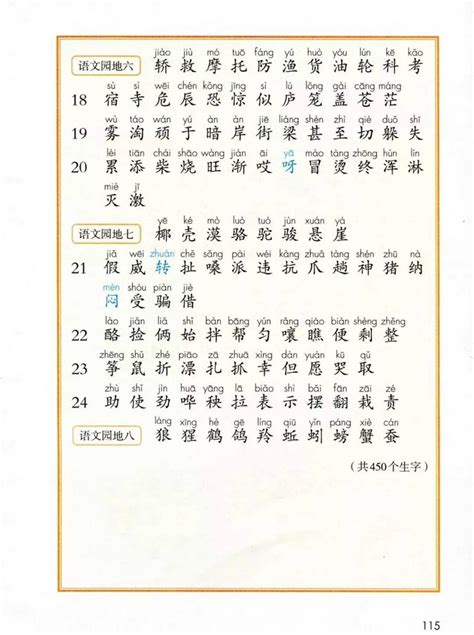 jiào jiù mó tuō fáng yú huò yóu lún kē kǎo
语文园地六 轿 救 摩 托 防 渔 货 油 轮 科 考
sù sì wēi chén kǒng jīng sì lú lóng gài cāng máng
18 宿 寺 危 辰 恐 惊 似 庐 笼 盖 苍 茫
wù táo wán yú àn àn jiē liáng shèn zhì qiè duǒ shī
19 雾 淘 顽 于 暗 岸 街 梁 甚 至 切 躲 失
lèi tiān chái shāo wàng jiàn āi yā mào tàng zhōng hún lín
20 累 添 柴 烧 旺 渐 哎 呀 冒 烫 终 浑 淋
miè jī
灭 激
yē ké mò luò tuó jùn xuán yá
语文园地七 椰 壳 漠 骆 驼 骏 悬 崖
jiǎ wēi zhuán chě sǎng pài wéi kàng zhuǎ tàng shén zhū nà
21 假 威 转 扯 嗓 派 违 抗 爪 趟 神 猪 纳
mèn shòu piàn jiè
闷 受 骗 借
lào jiǎn liǎ shǐ bàn bāng yún rǎng qiáo biàn shèng
22 酪 捡 俩 始 拌 帮 匀 嚷 瞧 便 剩 整
zhēng shǔ zhé piāo zā zhuā xìng dàn yuàn kū qǔ
23 筝 鼠 折 漂 扎 抓 幸 但 愿 哭 取
zhù shǐ jìn huā yāng lā biǎo shì bǎi fān zāi zé
24 助 使 劲 哗 秧 拉 表 示 摆 翻 栽 责
láng xīng hè gē líng qiū yǐn páng xiè cán
语文园地八 狼 猩 鹤 鸽 羚 蚯 蚓 螃 蟹 蚕
（共450个生字）
115